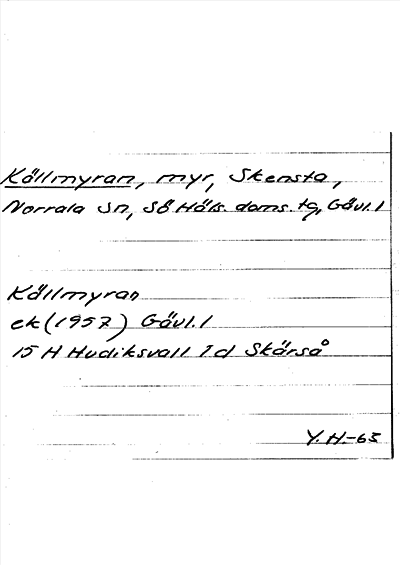 Källmyran, myr, Skensta,
Norrala Sn, Sö Häls. doms. tg, Gävl. l
Källmyran
ek (1957) Gävl. l
15 H Hudiksvall 1 d Skärså
Y. H.-65